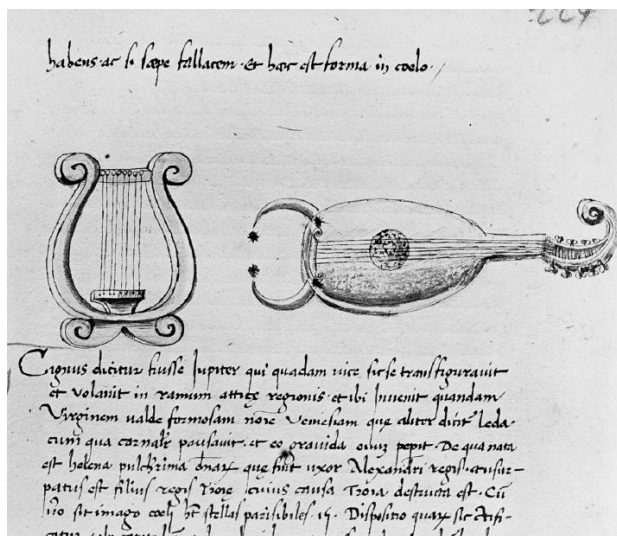 224
habens ac si sæpe fallacem. Et hæc est forma in coelo.
Cignus dicitur fuisse Jupiter qui quadam vice sic se transfiguravit
et volavit in ramum atticæ regionis et ibi invenit quandam
Virginem valde formosam noie Vemesiam que aliter dicit leda
cum qua carnalr pausavit. et eo gravida ovuz peperit. De qua nata
est helena pulchrima que fuit uxor Alexandri regis.
patus est filius regis Troie cuius causa Troia destructa est. Cu
sit imago coeli hns stellas Dispositio sic